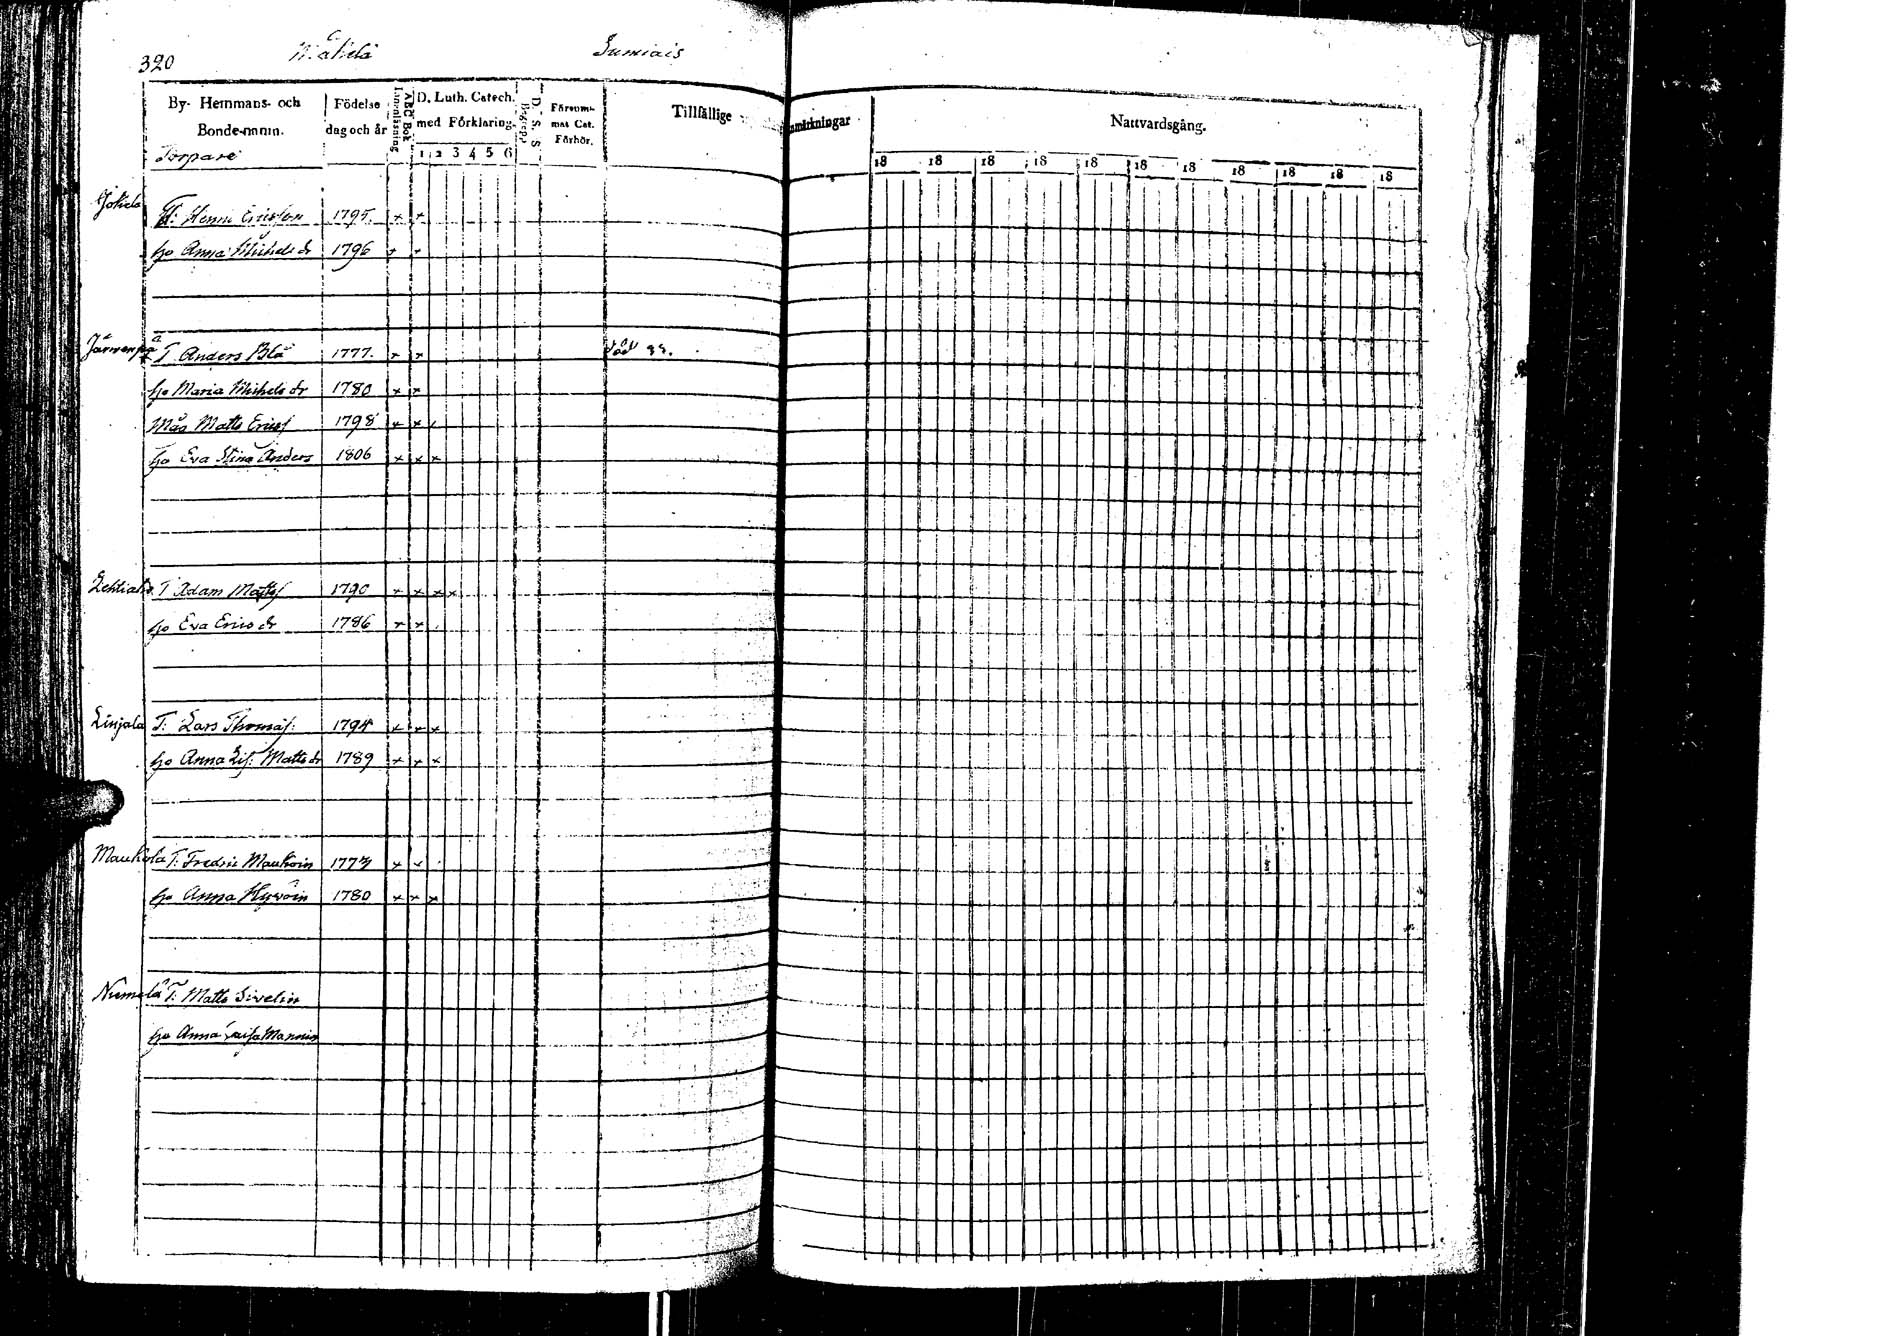 320
Sumiais
By- Hemmans- och Bonde-namn.
Torpare
Födelse dag och år
Innanläsning
ABC Bok
D. Luth. Catech. med Förklaring.
1 2 3 4 5 6
D. S. S. Begrepp
Försummat Cat. Förhör.
Tillfällige
anmärkningar
Nattvardsgång.
18 18 18 18 18 18 18 18 18 18 18
Jokela T: Henric Ericsson 1795. x x
ho Anna Michels dr 1796 x x
Järwenpää T. Anders Blå 1777. x x död 33.
ho Maria Michels dr 1780 x x
Måg Matts Erics 1798 x x
ho Eva Stina Anders 1806 x x x
T Adam Matts 1790 x x x x
ho Eva Erics dr 1786 x x
Linjala T: Lars Thomas: 1794 x x x
ho Anna Lis: Matts dr 1789 x x x
Maukola T: Fredric Maukoin 1773 x x
ho Anna Hyvöin 1780 x x x
Niemelä T: Matts Sivelin
ho Anna Caisa Mannin